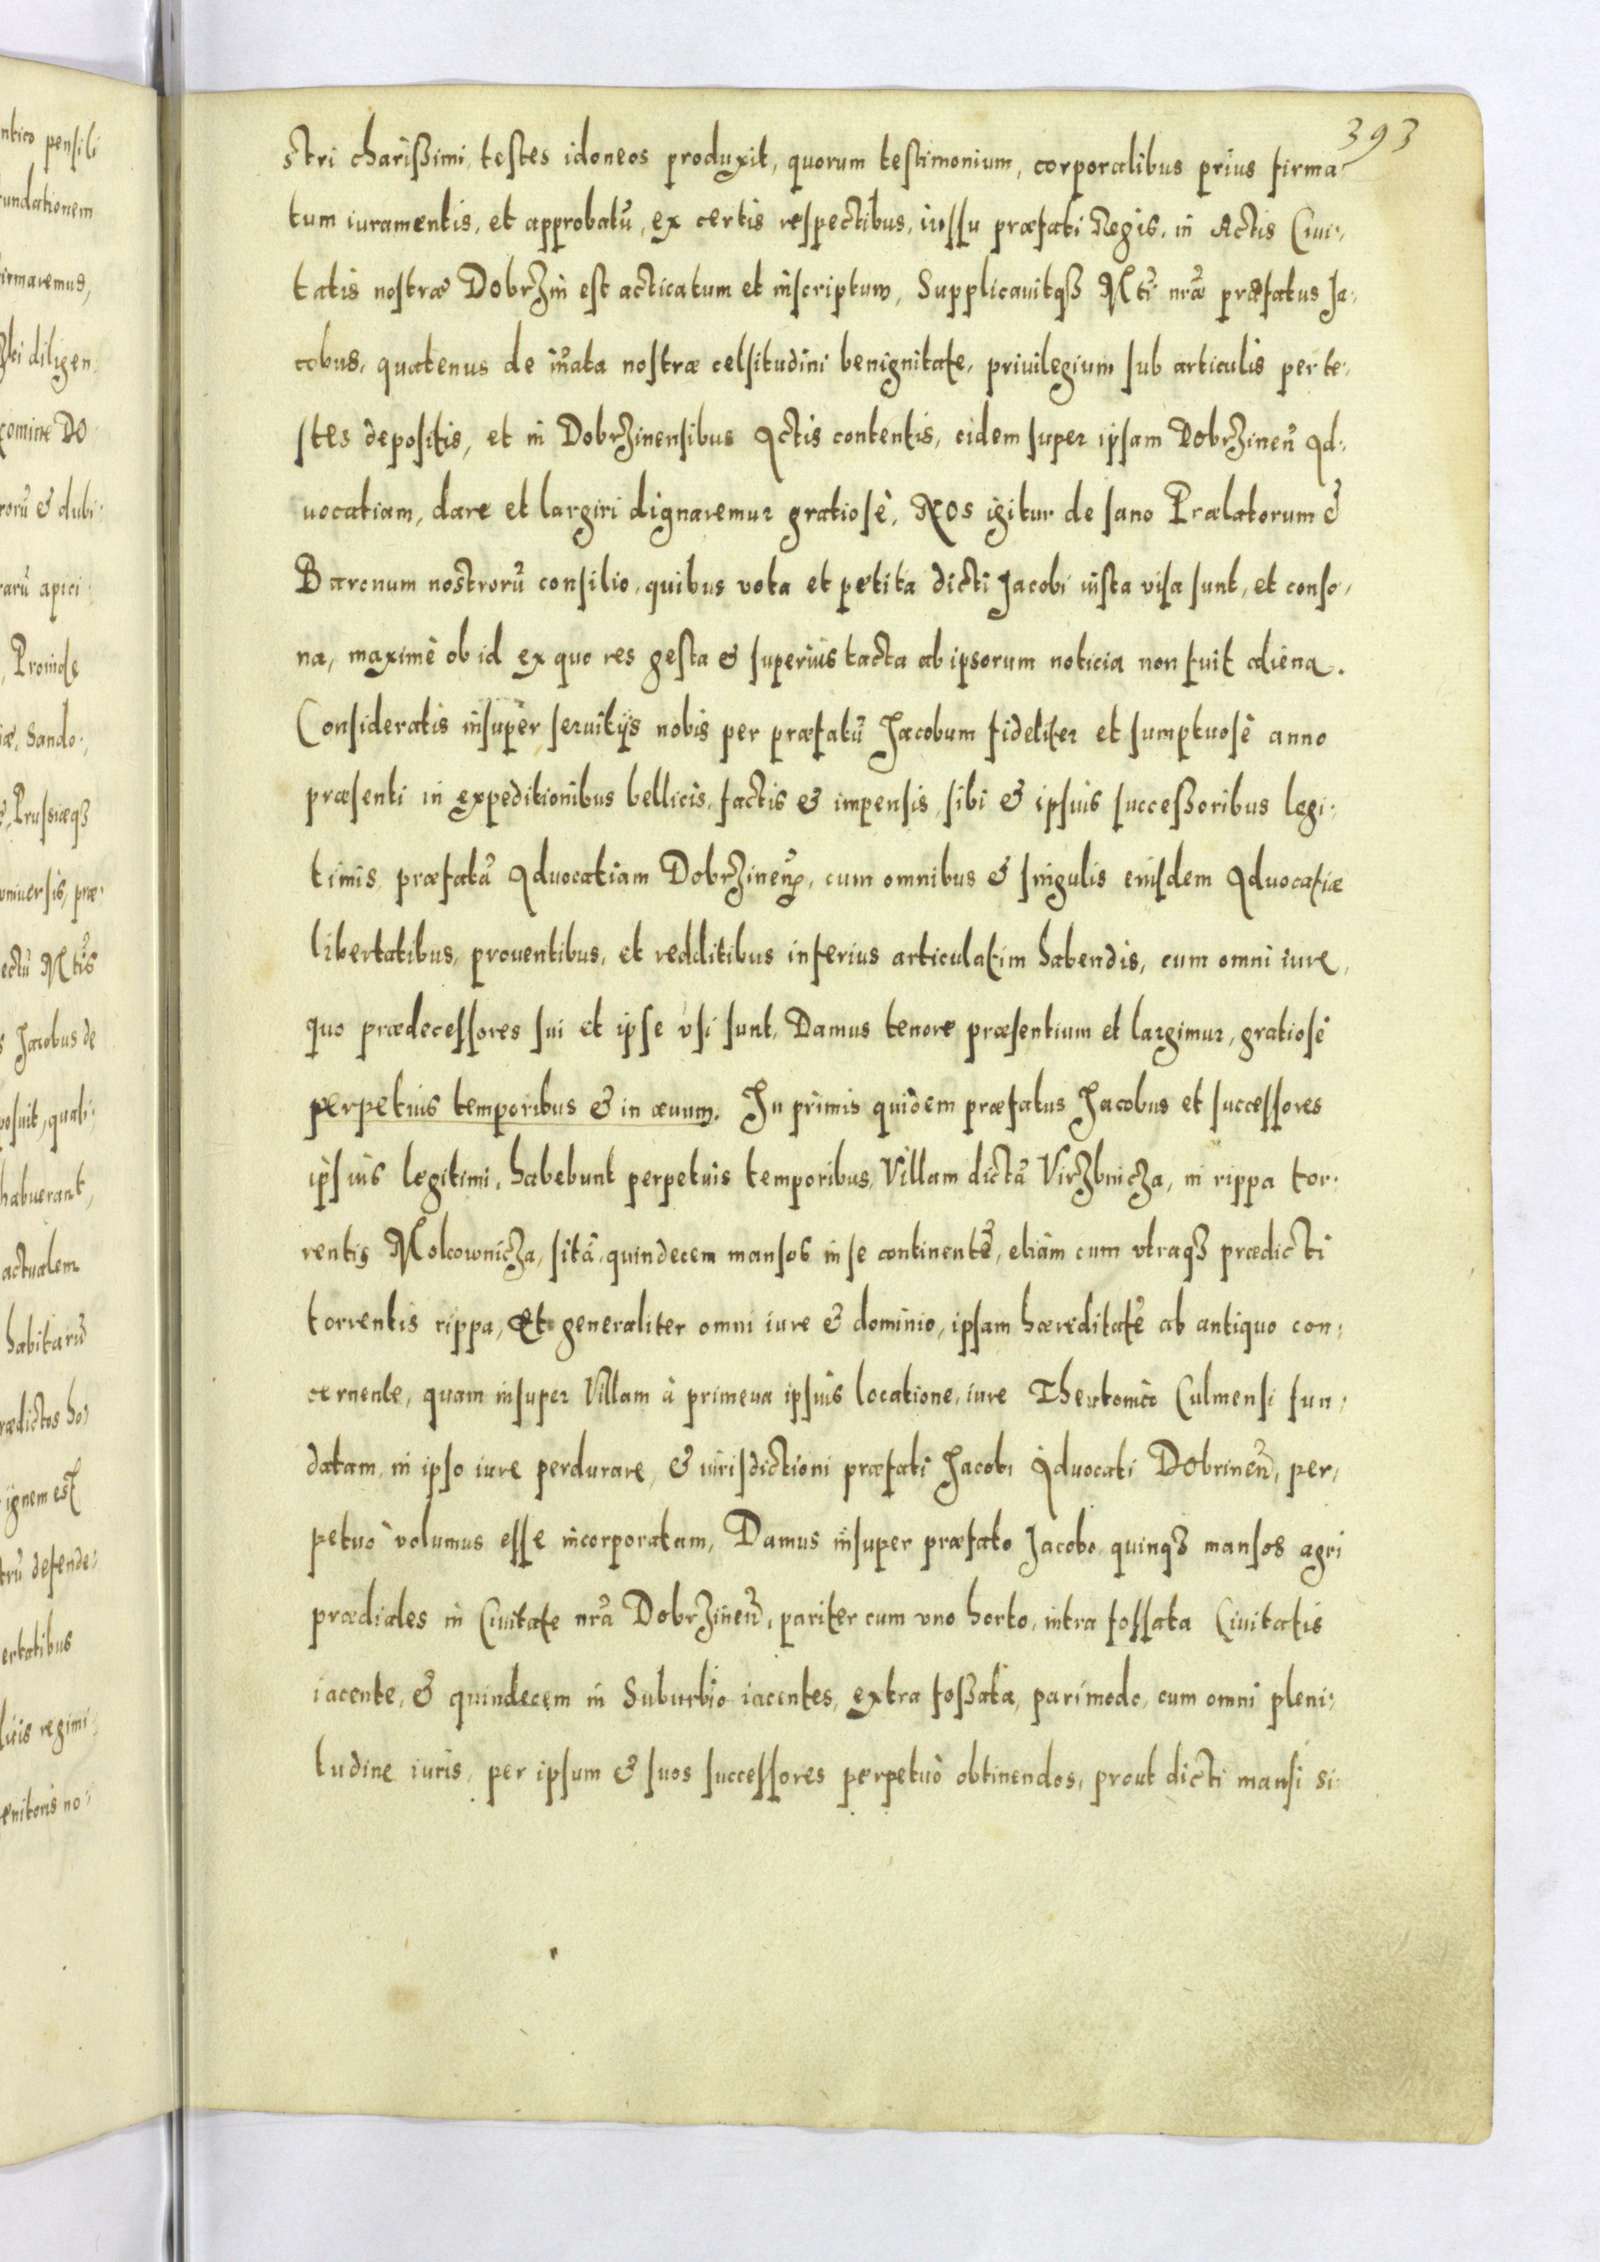 393
stri charißimi, testes idoneos produxit, quorum testimonium, corporalibus prius firma-
tum iuramentis, et approbatũ, ex certis respectibus, iussu præfati Regis, in Actis Ciui-
tatis nostræ Dobrzin est acticatum et inscriptum, Supplicauitqʒ Mti nr̃æ præfatus Ja-
cobus, quatenus de iñata nostræ celsitudini benignitate, priuilegium sub articulis per te-
stes depositis, et in Dobrzinensibus Actis contentis, eidem super ipsam Dobrzineñ Ad-
uocatiam, dare et largiri dignaremur gratiosè, Nos igitur de sano Prælatorum &
Baronum nostrorũ consilio, quibus vota et petita dicti Jacobi iusta visa sunt, et conso-
na, maximè ob id ex quo res gesta & superius tacta ab ipsorum noticia non fuit aliena.
Consideratis insuper seruitijs nobis per præfatũ Jacobum fideliter et sumptuosè anno
præsenti in expeditionibus bellicis, factis & impensis, sibi & ipsius successoribus legi-
timis, præfatã Aduocatiam Dobrzineñ, cum omnibus & singulis eiusdem Aduocatiæ
libertatibus, prouentibus, et redditibus inferius articulatim habendis, cum omni iure,
quo prædecessores sui et ipse vsi sunt, Damus tenore præsentium et largimur, gratiosè
perpetuis temporibus & in æuum. In primis quidem præfatus Jacobus et successores
ipsius legitimi, habebunt perpetuis temporibus, Villam dictã Virzbnicza, in rippa tor-
rentis Molcownicza, sitã, quindecem mansos in se continentẽ, etiam cum vtraqʒ prædicti
torrentis rippa, Et generaliter omni iure & dominio, ipsam hæreditatẽ ab antiquo con-
cernente, quam insuper Villam à primeua ipsius locatione, iure Theutonico Culmensi fun-
datam, in ipso iure perdurare, & iurisdictioni præfati Jacobi Aduocati Dobrineñ, per-
petuò volumus esse incorporatam, Damus insuper præfato Jacobo, quinqʒ mansos agri
prædiales in Ciuitate nr̃a Dobrzineñ, pariter cum vno horto, intra fossata Ciuitatis
iacente, & quindecem in Suburbio iacentes, extra foßata, pari modo, cum omni pleni-
tudine iuris, per ipsum & suos successores perpetuò obtinendos, prout dicti mansi si-